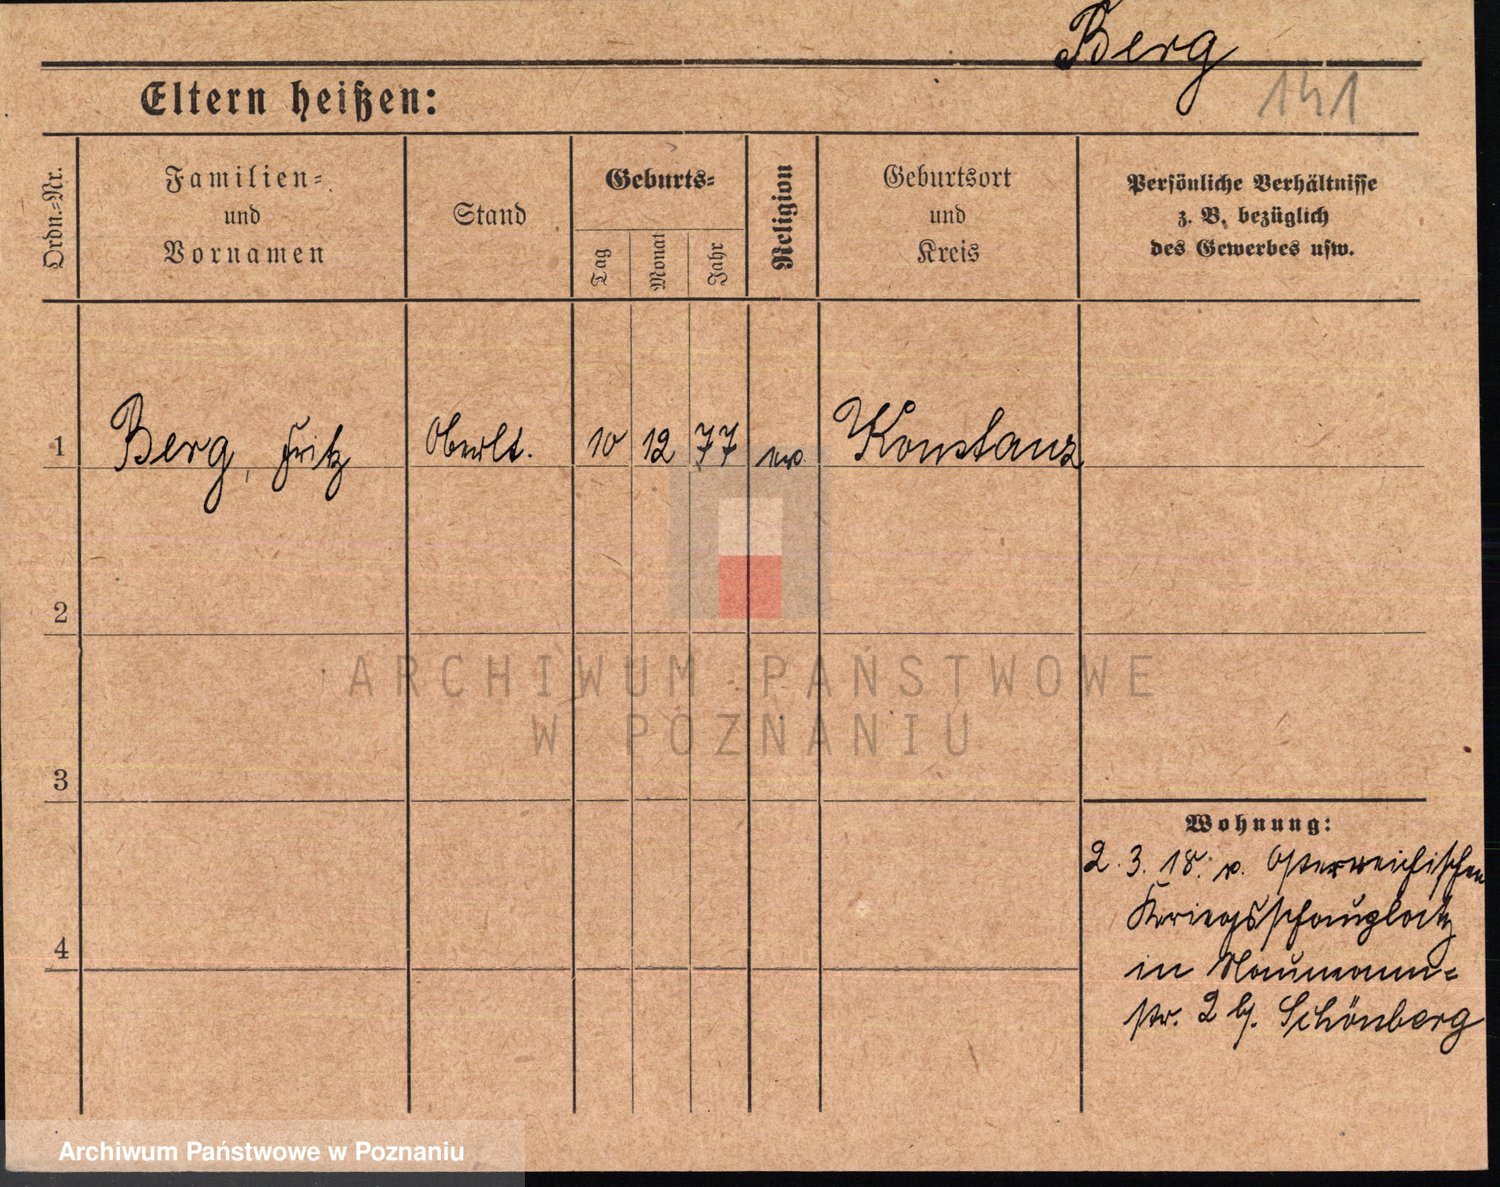 Berg
141
Eltern heißen:
Ordn.=Nr.
Familien=
und
Vornamen
Stand
Geburts=
Tag
Monat
Jahr
Religion
Geburtsort
und
Kreis
Persönliche Verhältnisse
z. B. bezüglich
des Gewerbes usw.
1 Berg, Fritz Oberlt. 10 12 77 ev Konstanz
2
3
4
Wohnung:
2. 3. 18. v. Österreichischen
Kriegsschauplatz
in Naumann=
str. 2 bj. Schönberg
ARCHIWUM PAŃSTWOWE
W POZNANIU
Archiwum Państwowe w Poznaniu